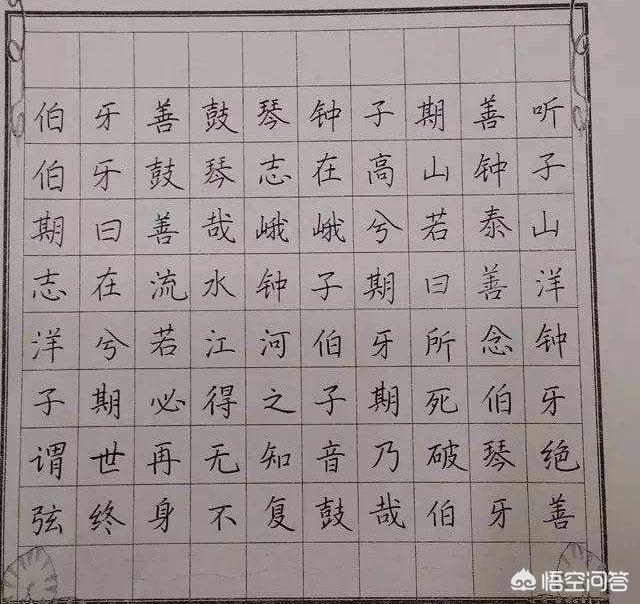 伯牙善鼓琴钟子期善听
伯牙鼓琴志在高山钟子
期曰善哉峨峨兮若泰山
志在流水钟子期曰善洋
洋兮若江河伯牙所念钟
子期必得之子期死伯牙
谓世再无知音乃破琴绝
弦终身不复鼓哉伯牙善
悟空问答